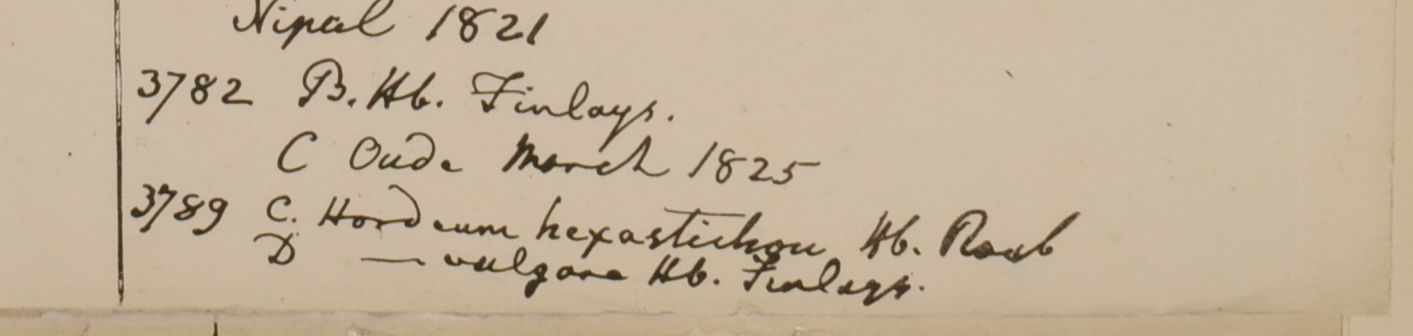 Nipal 1821
3782 B. Hb. Finlays.
C Oude March 1825
3789 C. Hordeum hexastichon Hb. Roxb
D — vulgare Hb. Finlays.